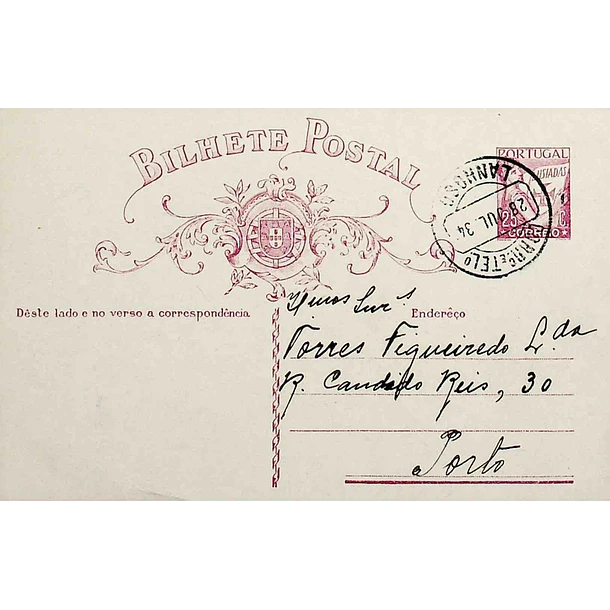 BILHETE POSTAL
PORTUGAL
LUSIADAS
25 C
CORREIO
LANHOSO
28 JUL. 34
Dêste lado e no verso a correspondência
Endereço
Torres Figueiredo L.da
R. Candido Reis, 30
Porto